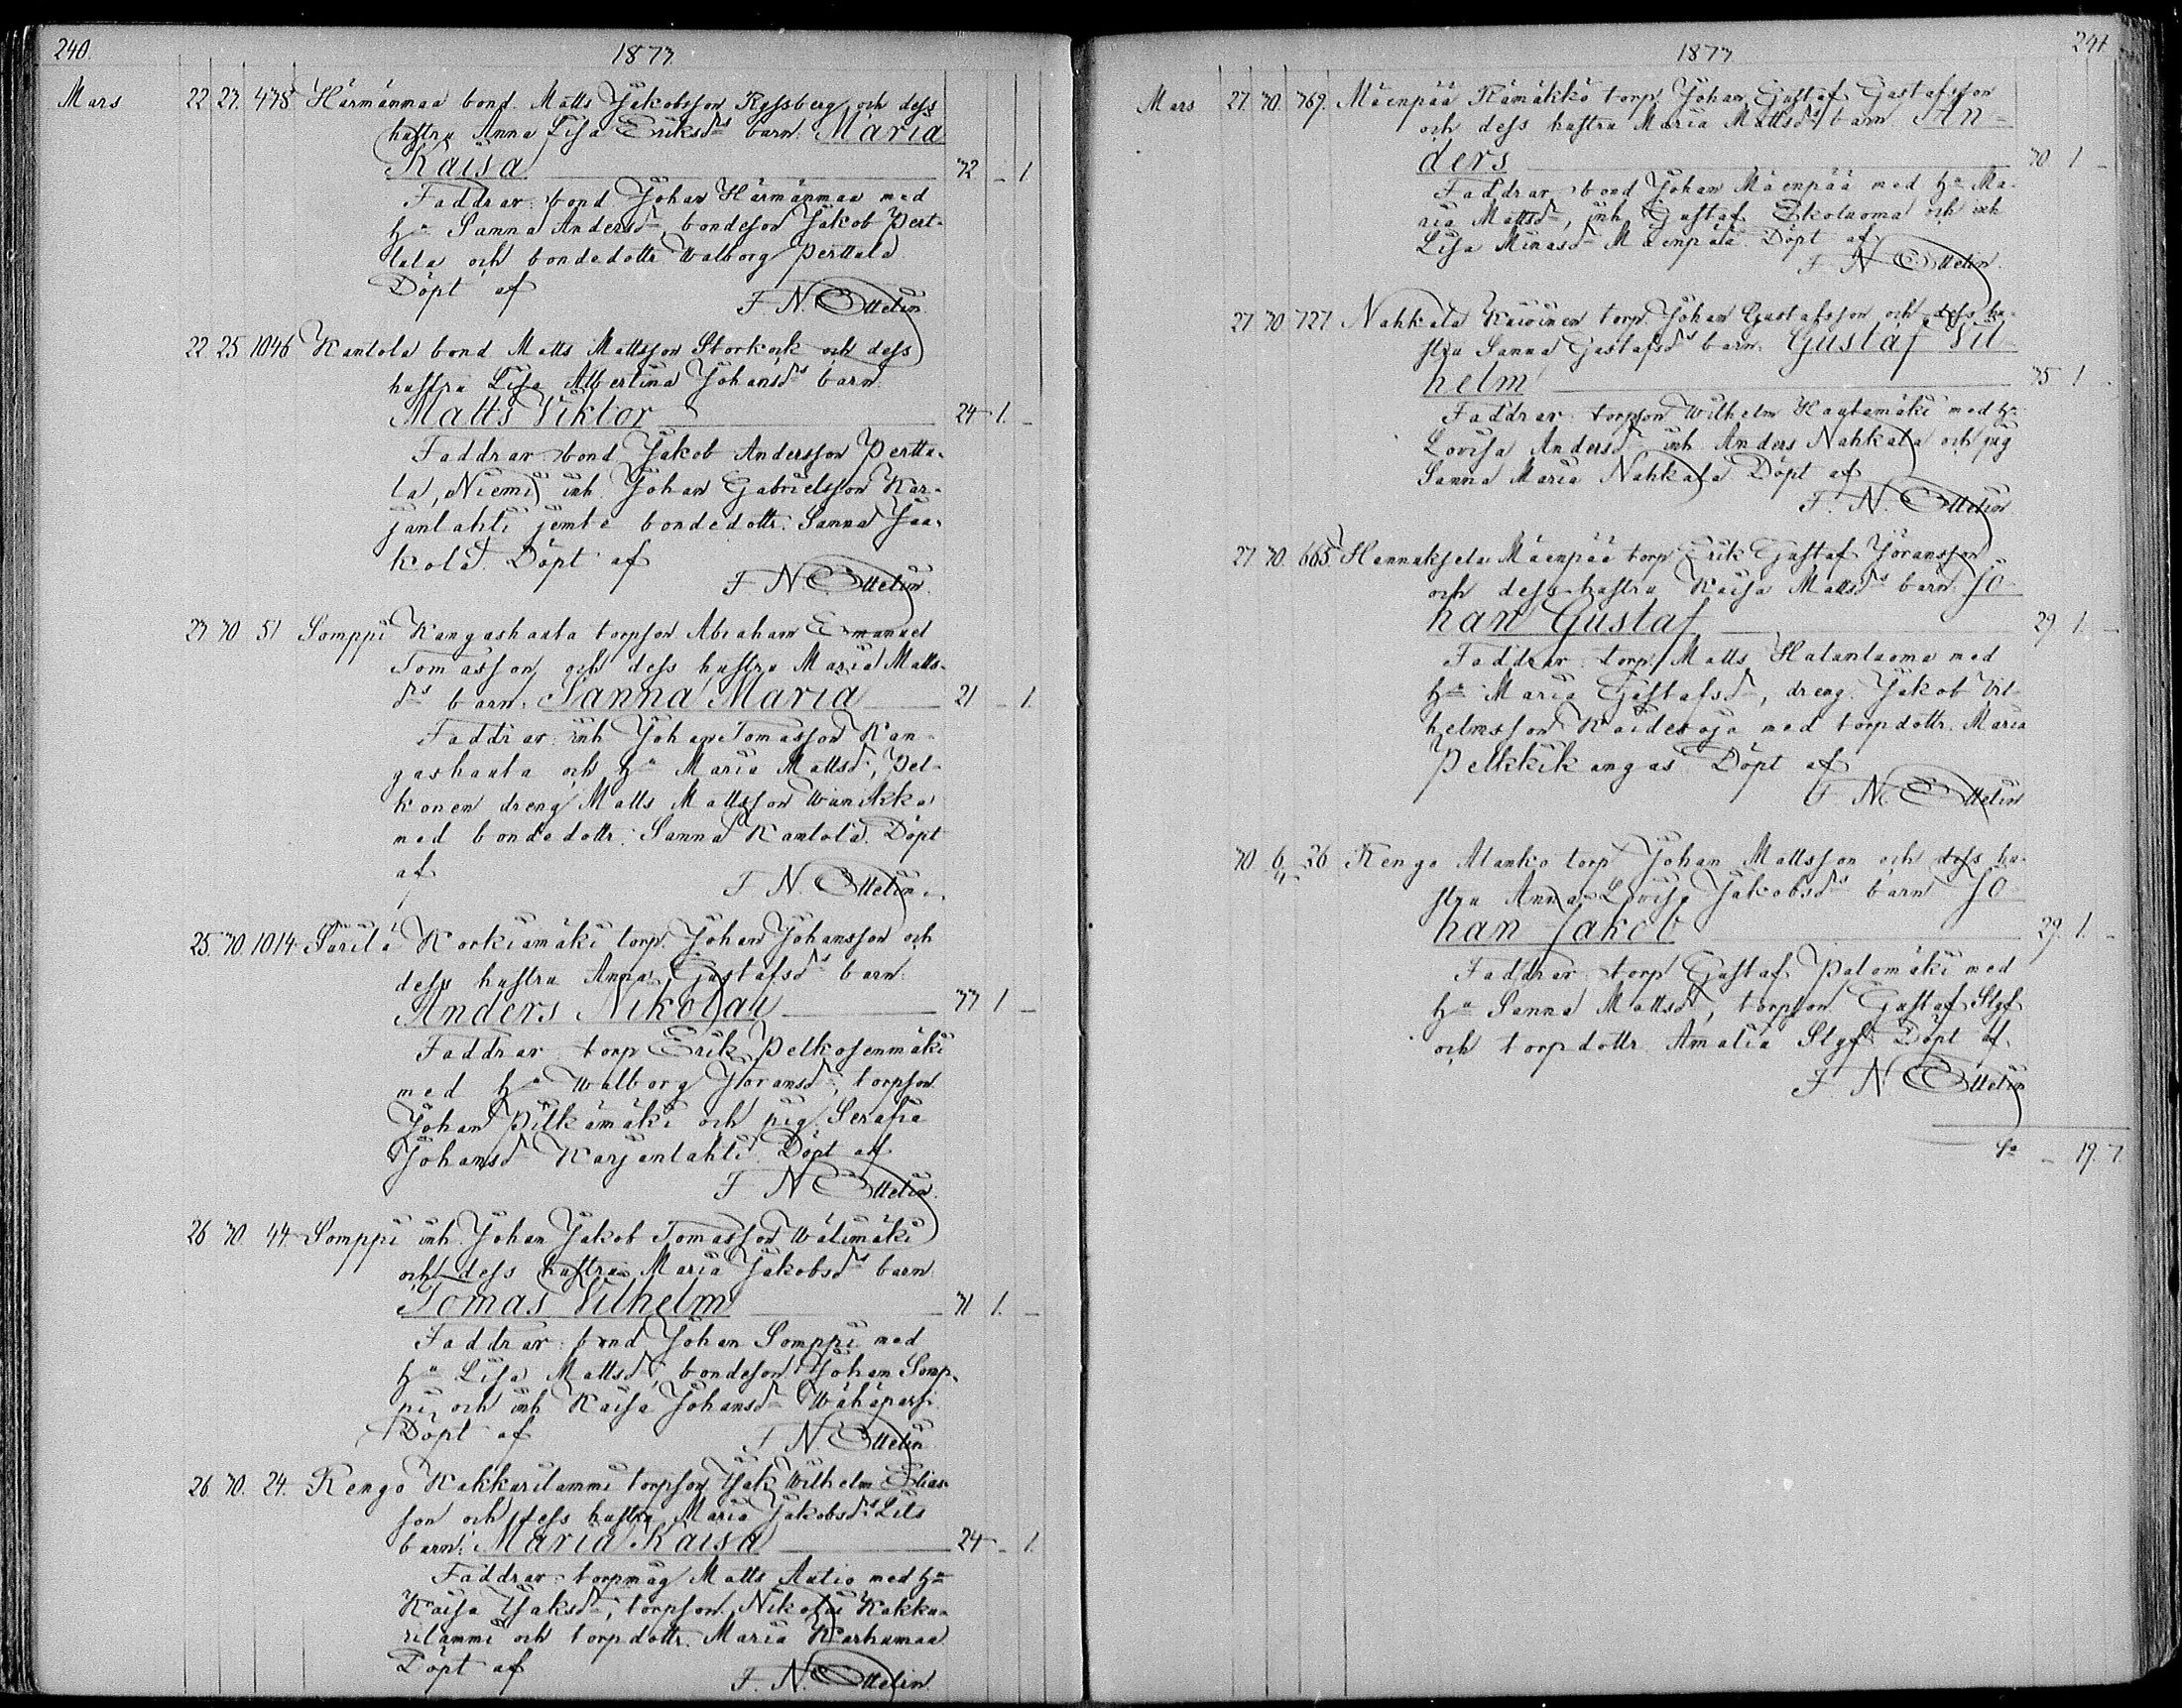 240.
1873.
Mars 22 23. 478 Härmänmaa bond. Matts Jakobsson Ryssberg och dess
hustru Anna Lisa Eriksdrs barn: Maria
Kaisa 32 – 1
Faddrar: bond Johan Härmänmaa med
hu Sanna Andersdr, bondeson Jakob Pert-
tala och bondedottr Walborg Perttala.
Döpt af F. N. Ottelin.
22 25 1046 Kantola bond Matts Mattsson Storkock och dess
hustru Lisa Albertina Johansdrs barn.
Matts Viktor 24 1. –
Faddrar bond Jakob Andersson Pertta-
la, Niemi inh. Johan Gabrielsson Kar-
jantahti jemte bondedottr. Sanna Jaa-
kola. Döpt af
F. N. Ottelin.
23 30 51 Somppi Kangashaata torpson Abraham Emanuel
Tomasson och dess hustru Maria Matts-
drs barn. Sanna Maria 21 – 1.
Faddrar: inh Johan Tomasson Kan-
gashaata och hu Maria Mattsdr, Pel-
konen dreng Matts Mattsson Wänikkä
med bondedottr. Sanna Kantola. Döpt
af
F. N. Ottelin.
25. 30. 1014 Särilä Korkiamäki torp. Johan Johansson och
dess hustru Anna Gustafsdrs barn.
Anders Nikolai 33 1 –
Faddrar torp Erik Pelkosenmäki
med hu Walborg Göransdr, torpson
Johan Pilkämäki och pig. Serafia
Johansdr Karjanlahti. Döpt af
F. N. Ottelin.
26 30. 44 Somppi inh. Johan Jakob Tomasson Wälimäki
och dess hustru Maria Jakobsdrs barn
Tomas Vilhelm 31 1. –
Faddrar: bond Johan Somppi med
hu Lisa Mattsdr, bondeson Johan Somp-
pi och inh Kaisa Johansdr
Döpt af F. N. Ottelin
26. 30. 24. Rengo Kakkurilammi torpson Isak Wilhelm Elias-
son och dess hustru Maria Jakobsdr Lils
barn: Maria Kaisa 24 – 1.
Faddrar: torpmåg Matts Autio med hu
Kaisa Isaksdr, torpson Nikolai Kakku-
rilammi och torpdottr. Maria Karhumaa
Döpt af F. N. Ottelin.
1873
241.
Mars 27. 30. 769. Mäenpää Rämäkkö torp. Johan Gustaf Gustafsson
och dess hustru Maria Mattsdrs barn An-
ders 30 1 –
Faddrar bond Johan Mäenpää med hu Ma-
ria Mattsdr, inh Gustaf Ekoluoma och inh
Lisa Mäenpää. Döpt af
F. N. Ottelin.
27 30. 727 Nahkala Kaivinen torp. Johan Gustafsson och dess hu-
stru Sanna Gustafsdrs barn. Gustaf Vil-
helm 35 1.
Faddrar torpson Wilhelm Kaytamäki med hu
Lovisa Andersdr inh Anders Nahkala och pig
Sanna Maria Nahkala Döpt af
F. N. Ottelin
27 30. 665 Hannuksela Mäenpää torp Erik Gustaf Göransson
och dess hustru Kaisa Mattsdrs barn. Jo-
han Gustaf 29 1. –
Faddrar: torp. Matts Hatantaoma med
hu Maria Gustafsdr, dreng. Jakob Vil-
helmsson Kaidesoja med torpdottr. Maria
Pelkkikangas. Döpt af
F. N. Ottelin
30 6/4 26 Rengo Alanko torp Johan Mattsson och dess hu-
stru Anna Lovisa Jakobsdrs barn Jo-
han Jakob 29. 1. –
Faddrar torp Gustaf Palomäki med
hu Sanna Mattsdr, torpson Gustaf Slgf
och torpdottr. Amalia Slgf. Döpt af.
F. N. Ottelin
Sa – 19. 7.